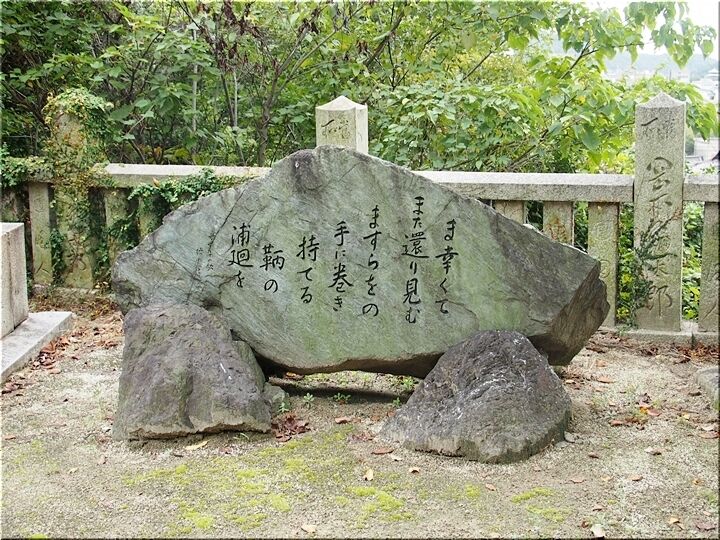 ま幸くて
また還り見む
ますらをの
手に巻き
持てる
鞆の
浦廻を